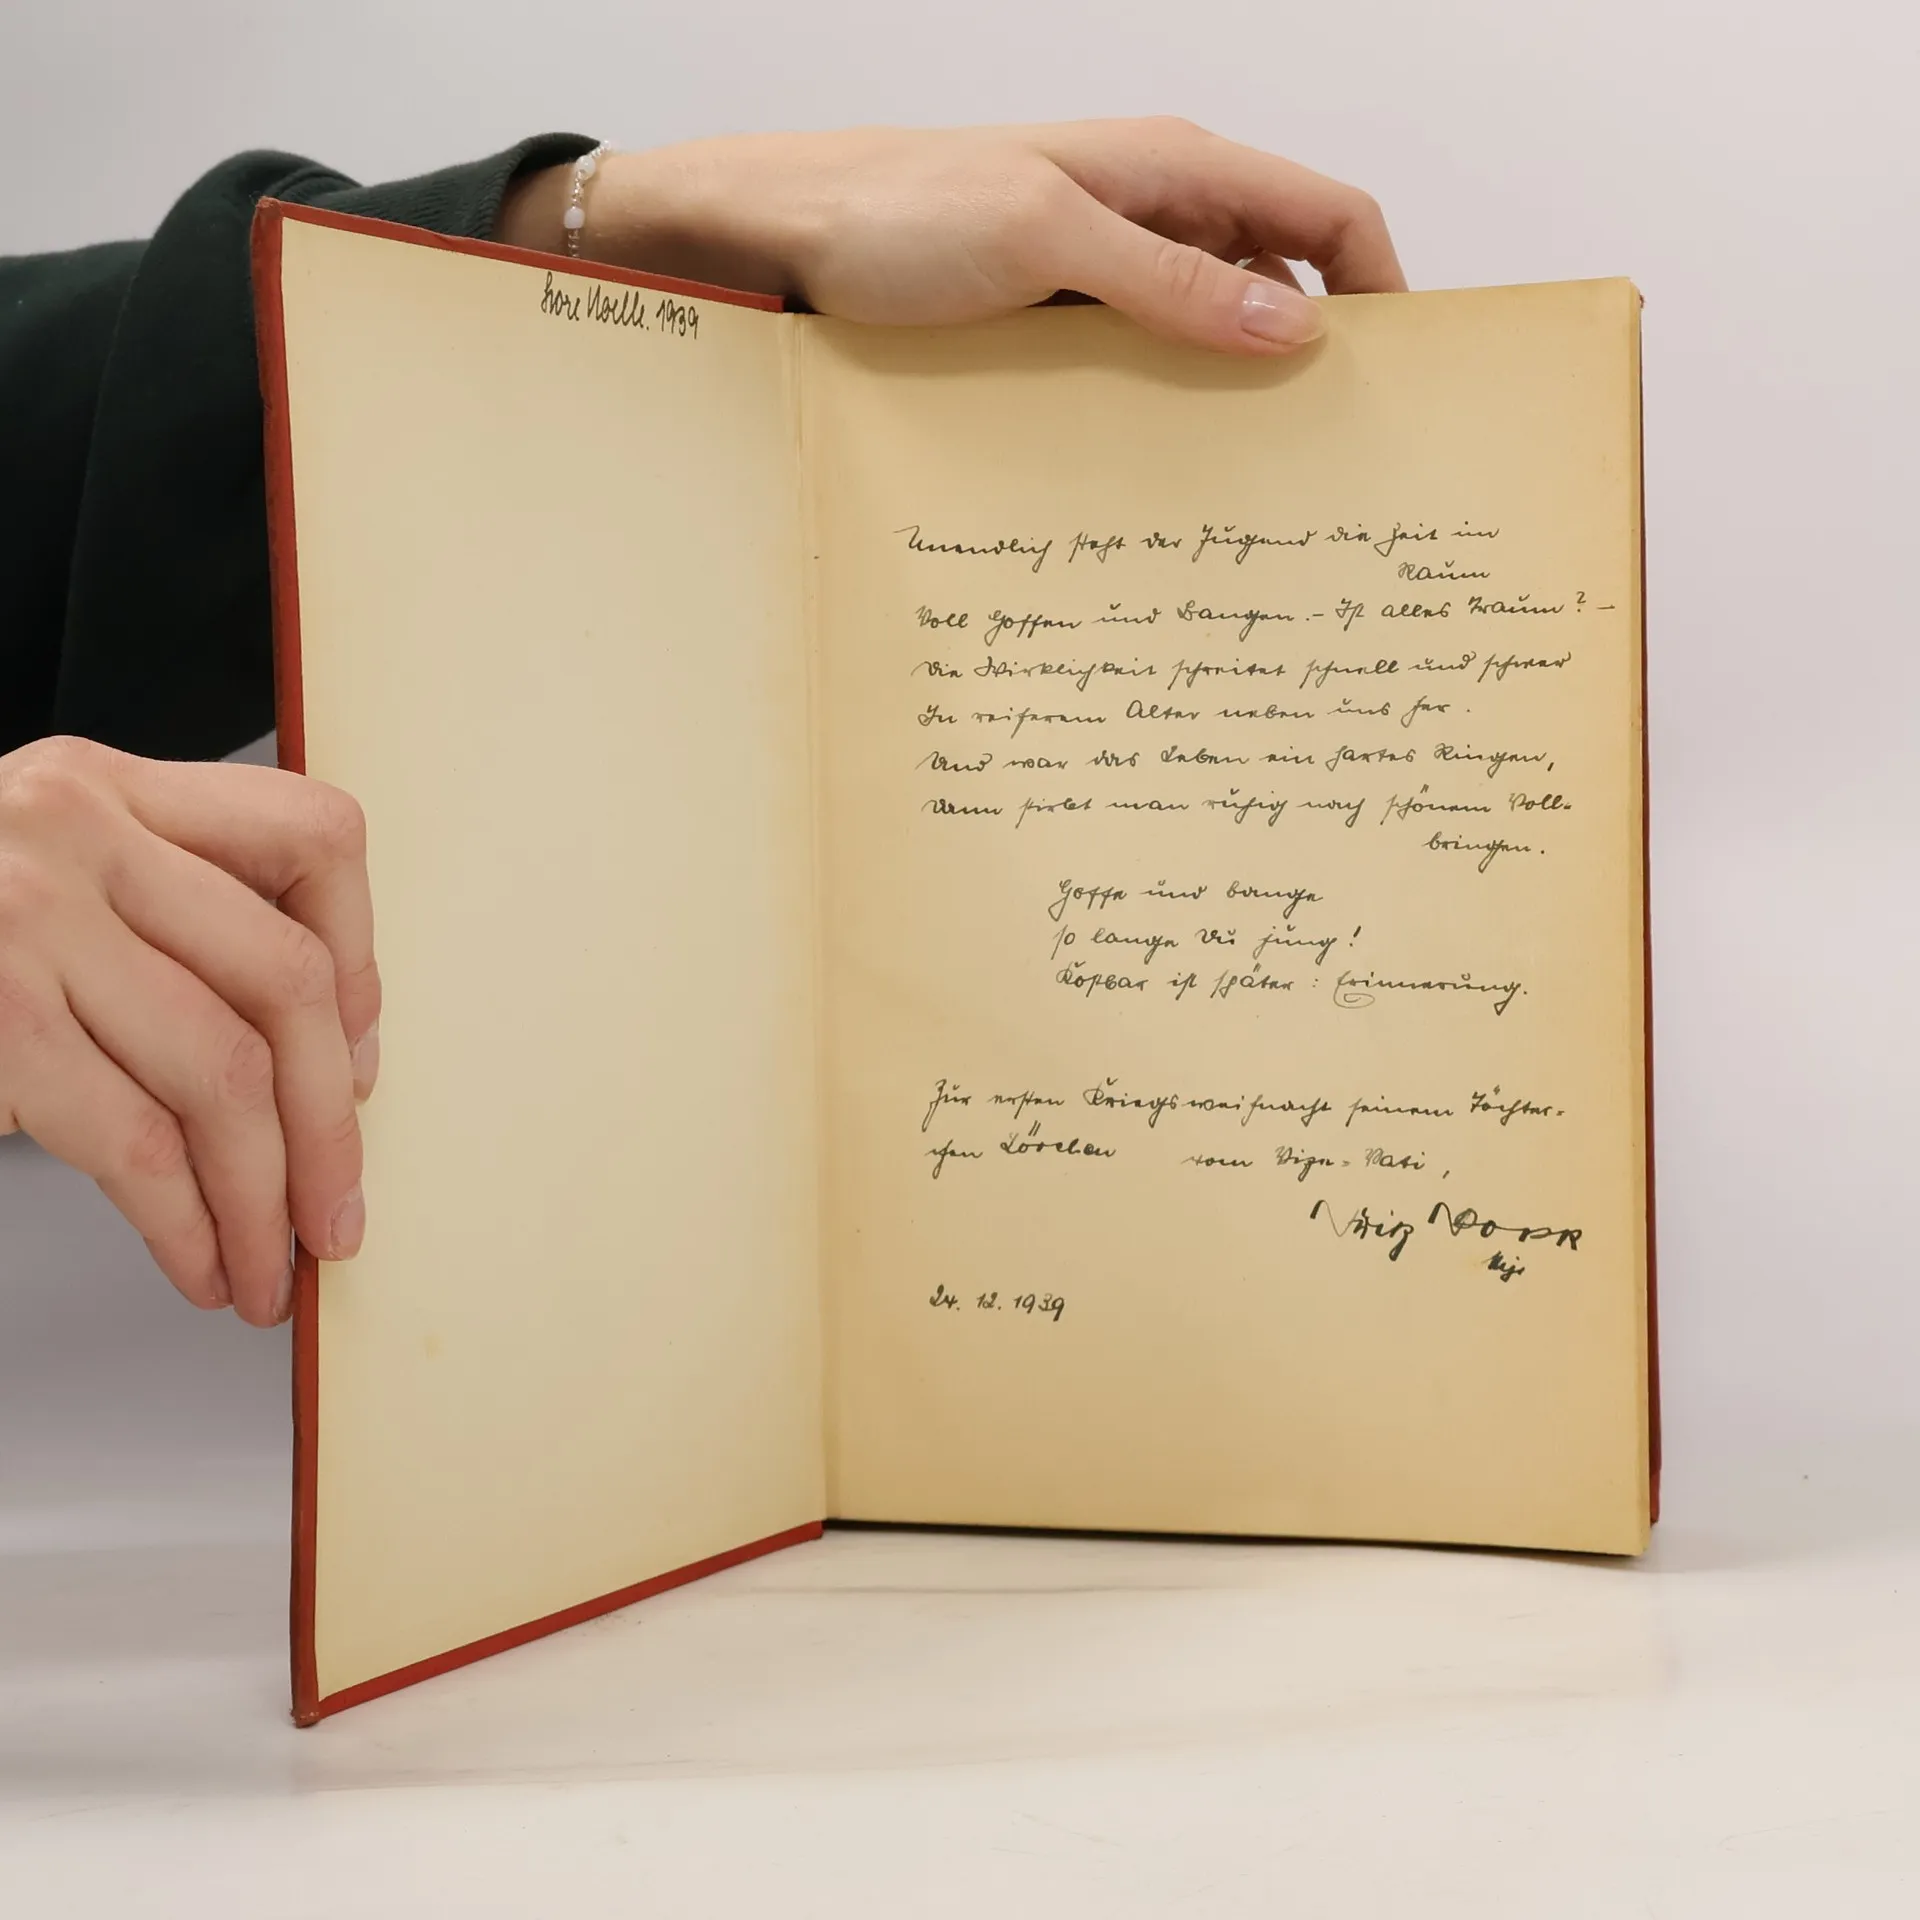 Lore Noelle. 1939
Unendlich steht der Jugend die Zeit im
Raum
Voll Hoffen und Bangen. – Ist alles Traum? –
Die Wirklichkeit schreitet schnell und schwer
In reiferem Alter neben uns her.
Und war das Leben ein hartes Ringen,
Dann stirbt man ruhig nach schönem Voll-
bringen.
Hoffe und bange
so lange Du jung!
Kostbar ist später: Erinnerung.
Zur ersten Kriegsweihnacht seinem Töchter-
chen Lörchen vom Vize-Vati,
Fritz
24. 12. 1939